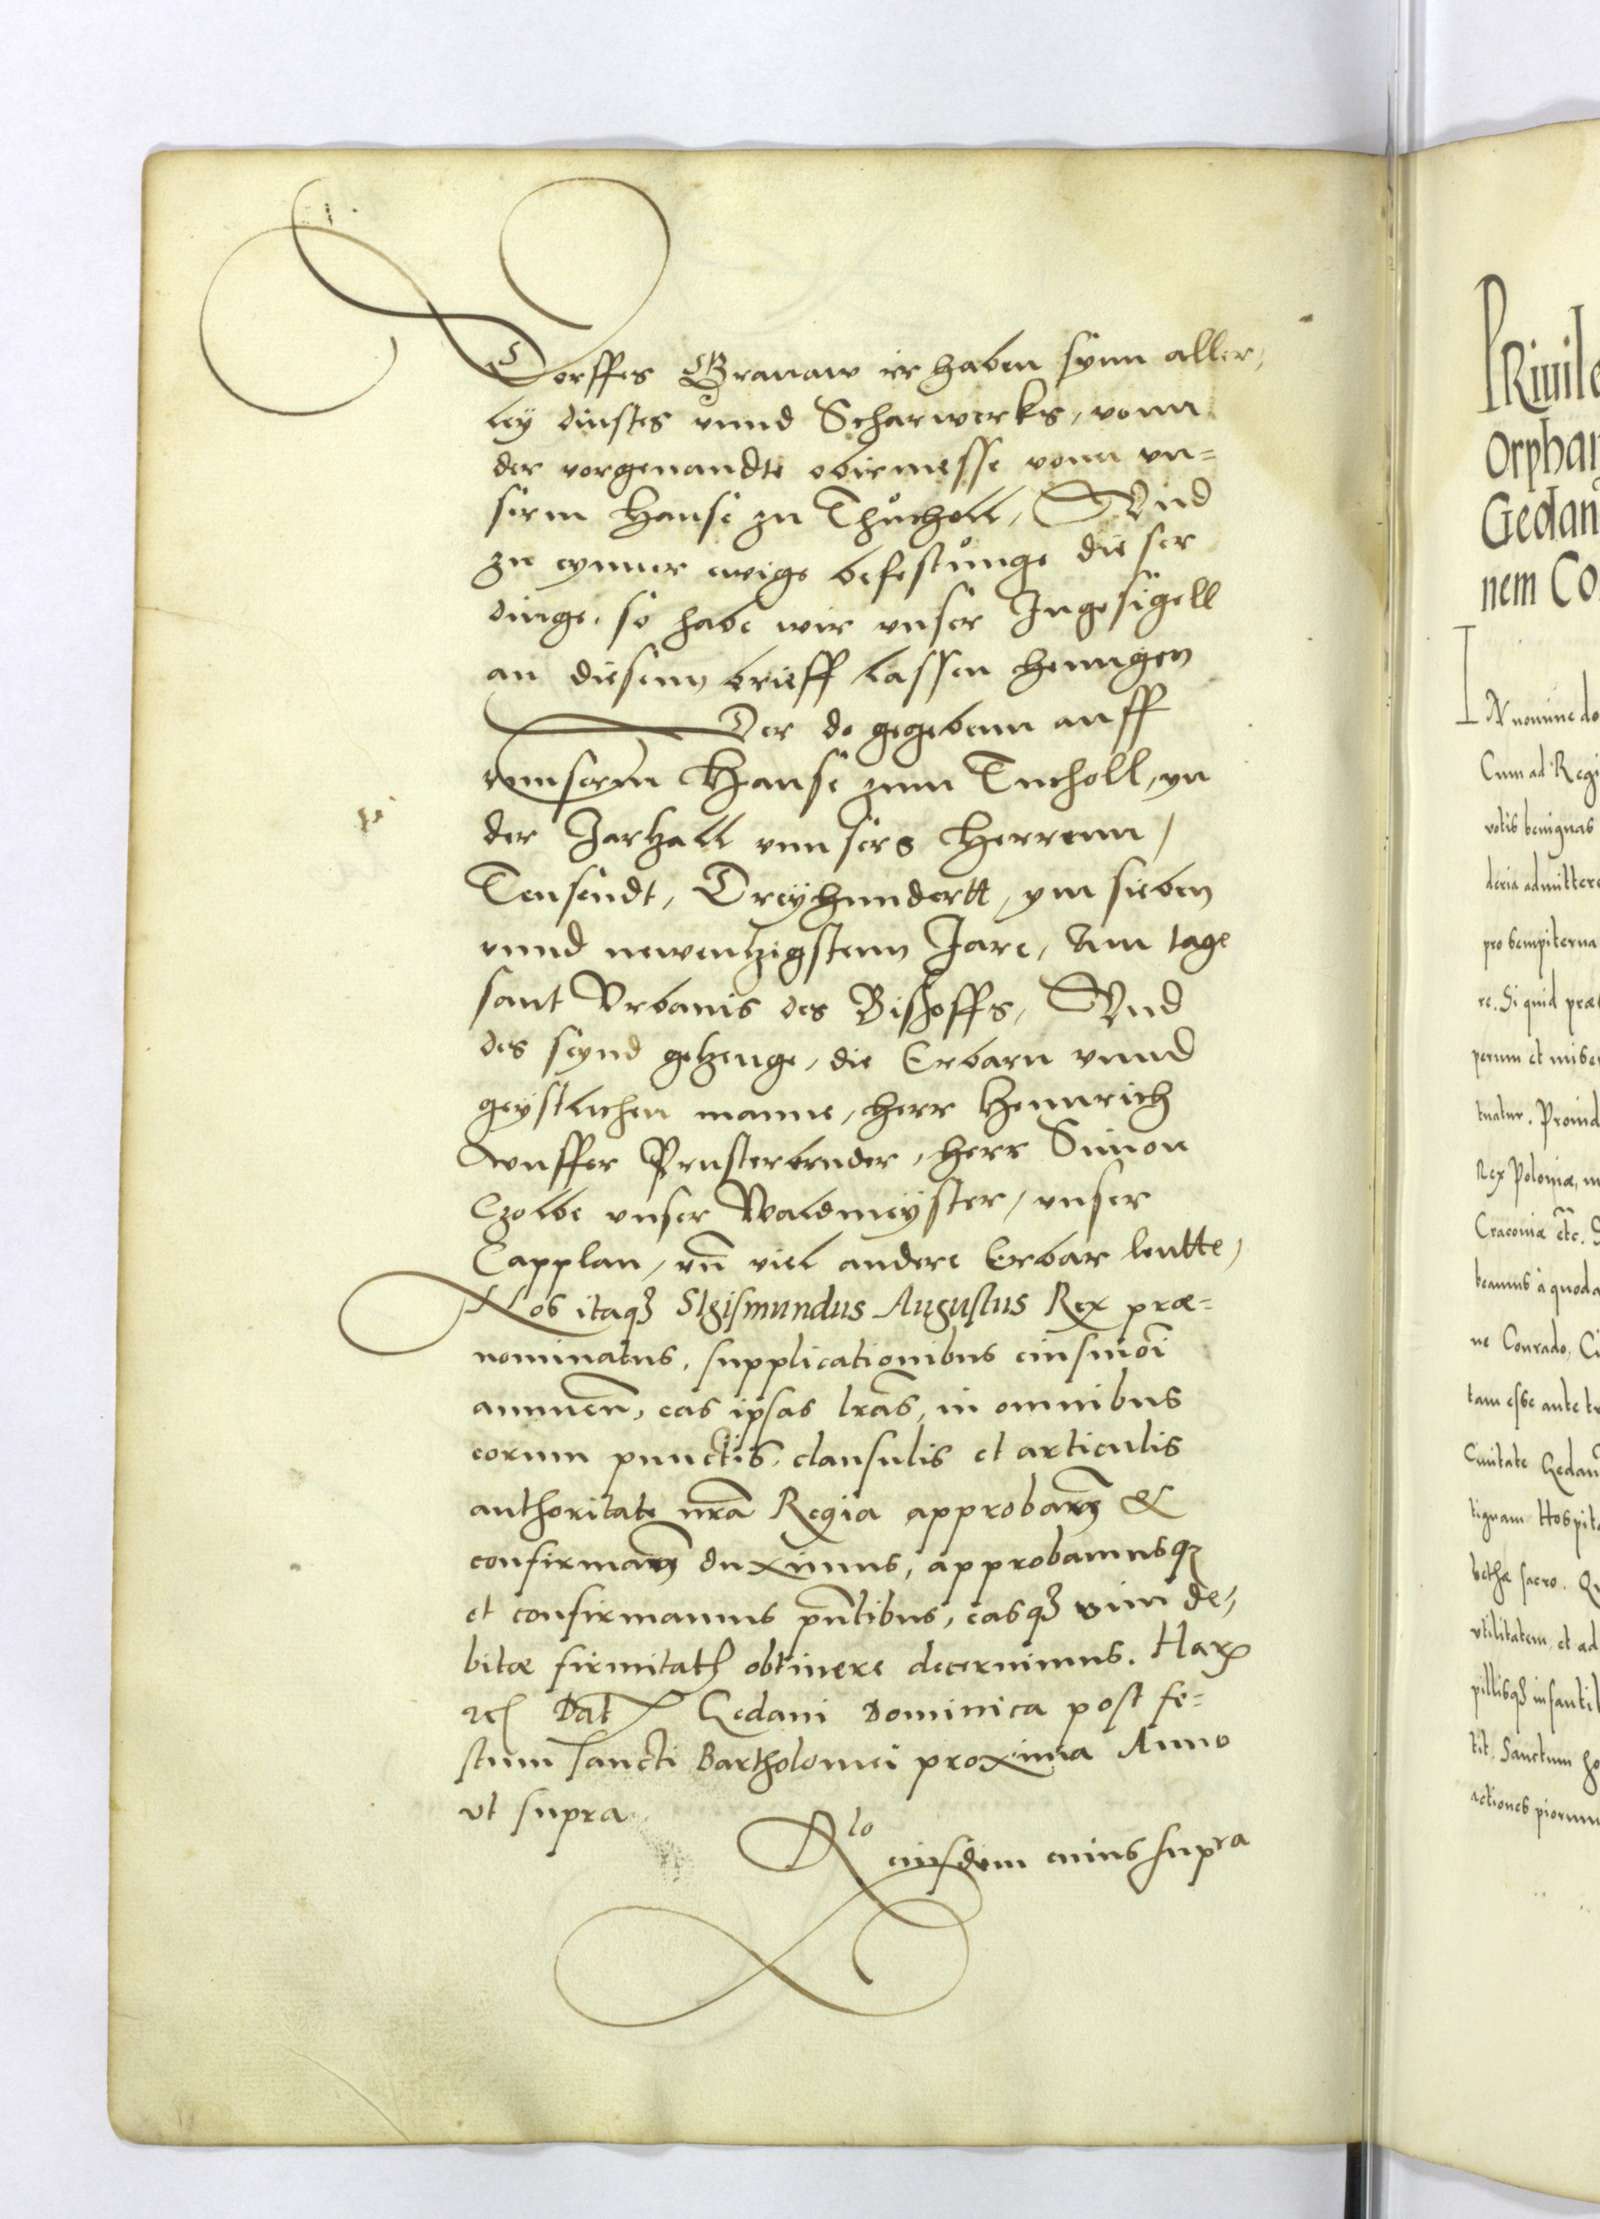 Dorffes Granaw irhaben synn aller,
ley dinstes vnnd Scharwerks, vonn
der vorgenandte obirmesse vonn vn=
serm Hause zu Thůcholl, Vnd
zu eynner ewige befestůnge dieser
dinge, so habe wir vnser Ingesigell
an diesenn brieff lassen henngen
Der do gegebenn auff
vnnserm Hause zum Tucholl, yn
der Jarzall vnnsers Herrenn,
Tausendt, Dreyhundertt, ym sieben
vnnd newentzigstenn Jare, Am tage
sant Vrbanis des Bishoffs, Vnd
des seynd getzeuge, die Erbarn vnnd
geystlichen manne, herr Hennrich
Prusterbruder, herr Simon
Czolbe vnser Waldmeyster, vnser
Capplan, vn̄ viel andere Erbar leutte,
Nos itaqꝫ SIgismundus Augustus Rex præ=
nominatus, supplicationibus eiusmōi
annuen̄, eas ipsas lrās, in omnibus
eorum punctis, clausulis et articulis
authoritate nrā Regia approban̄ &
confirman̄ duximus, approbamusqꝫ
et confirmamus pn̄tibus, easqꝫ vim de,
bitæ firmitatꝭ obtinere decernimus. Harꝝ
Dat Gedani Dominica post fe=
stum sancti Bartholomei proxima Anno
vt supra
Rlo
eiusdem cuius supra
PRiuile
Orphan
Gedan
nem Co
IN nomine do
Cum ad Regi
votis benignas
deria admittere
pro sempiterna
re. Si quid præ
perum et mise
tuatur. Proind
Rex Poloniæ, m
Cracoviæ etc. S
beamus à quoda
ne Conrado, Ci
tam esse ante tr
Ciuitate Gedan
tignam Hospita
bethæ sacro. Q
vtilitatem, et ad
pillisqꝫ infantil
tit. Sanctum ho
actiones piorum